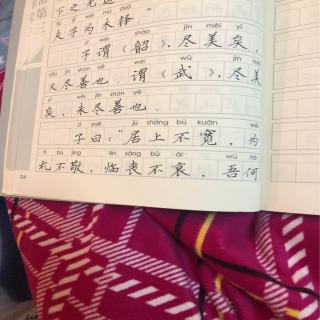 夫子为木铎。”
zǐ wèi sháo jìn měi yǐ
子谓《韶》，尽美矣，
yòu jìn shàn yě wèi wǔ jìn měi
又尽善也。谓《武》，尽美
yǐ wèi jìn shàn yě
矣，未尽善也。
zǐ yuē jū shàng bù kuān wéi
子曰：“居上不宽，为
lǐ bù jìng lín sāng bù āi wú hé
礼不敬，临丧不哀，吾何